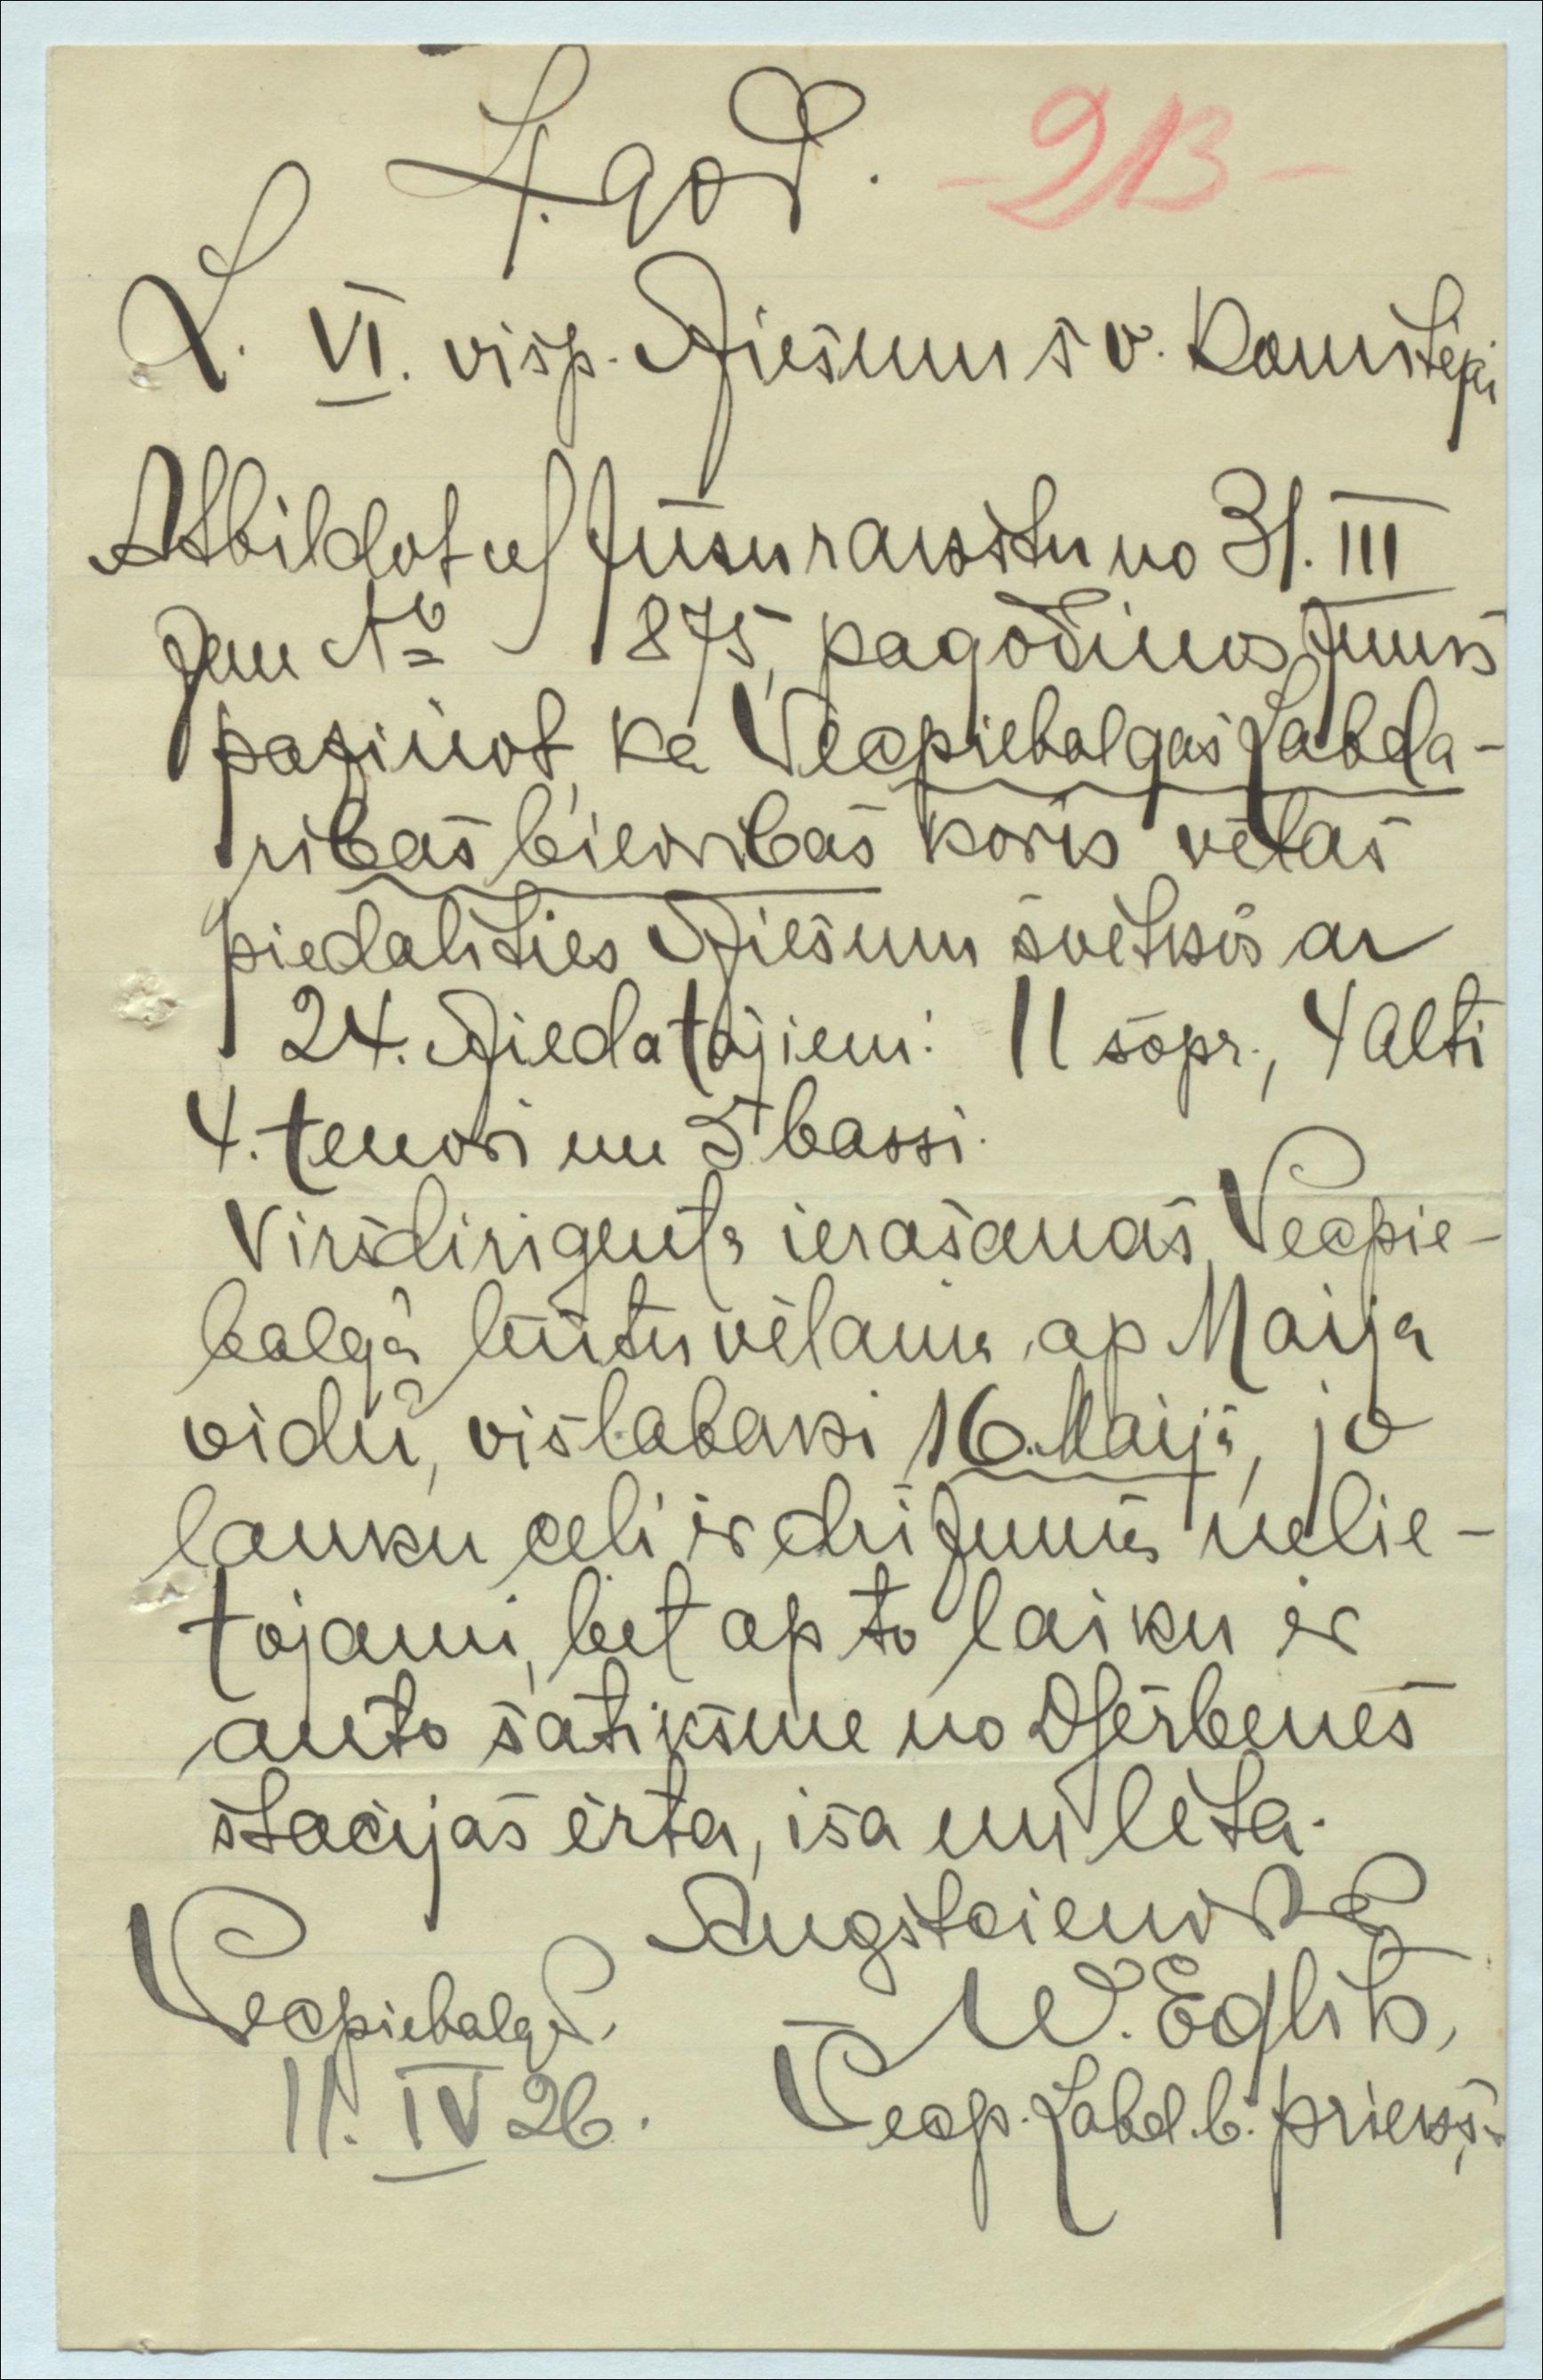 Ļ. god. -213-
L. VI. visp. Dziesmu sv. Komitejai
Atbildot uz Jūsu rakstu no 31. III
zem № 875, pagodinos Jums
paziņot, ka Vecpiebalgas Labda-
rības biedrības koris vēlas
piedalīties Dziesmu svētkos ar
24. dziedatājiem: 11 sopr., 4 alti
4. tenori un 5 bassi.
Virsdirigenta ierašanas Vecpie-
balgā būtu vēlama ap Maija
vidu, vislabaki 16. Maijā, jo
lauku ceļi ir drīz jums nelie-
tojami, bet ap to laiku ir
auto satiksme no Dzērbenes
stacijas ērta, īsa un lēta.
Augstcienībā
Vecpiebalgā. W. Eglīts,
11. IV 26. Vecp. Labd. b. priekšn.